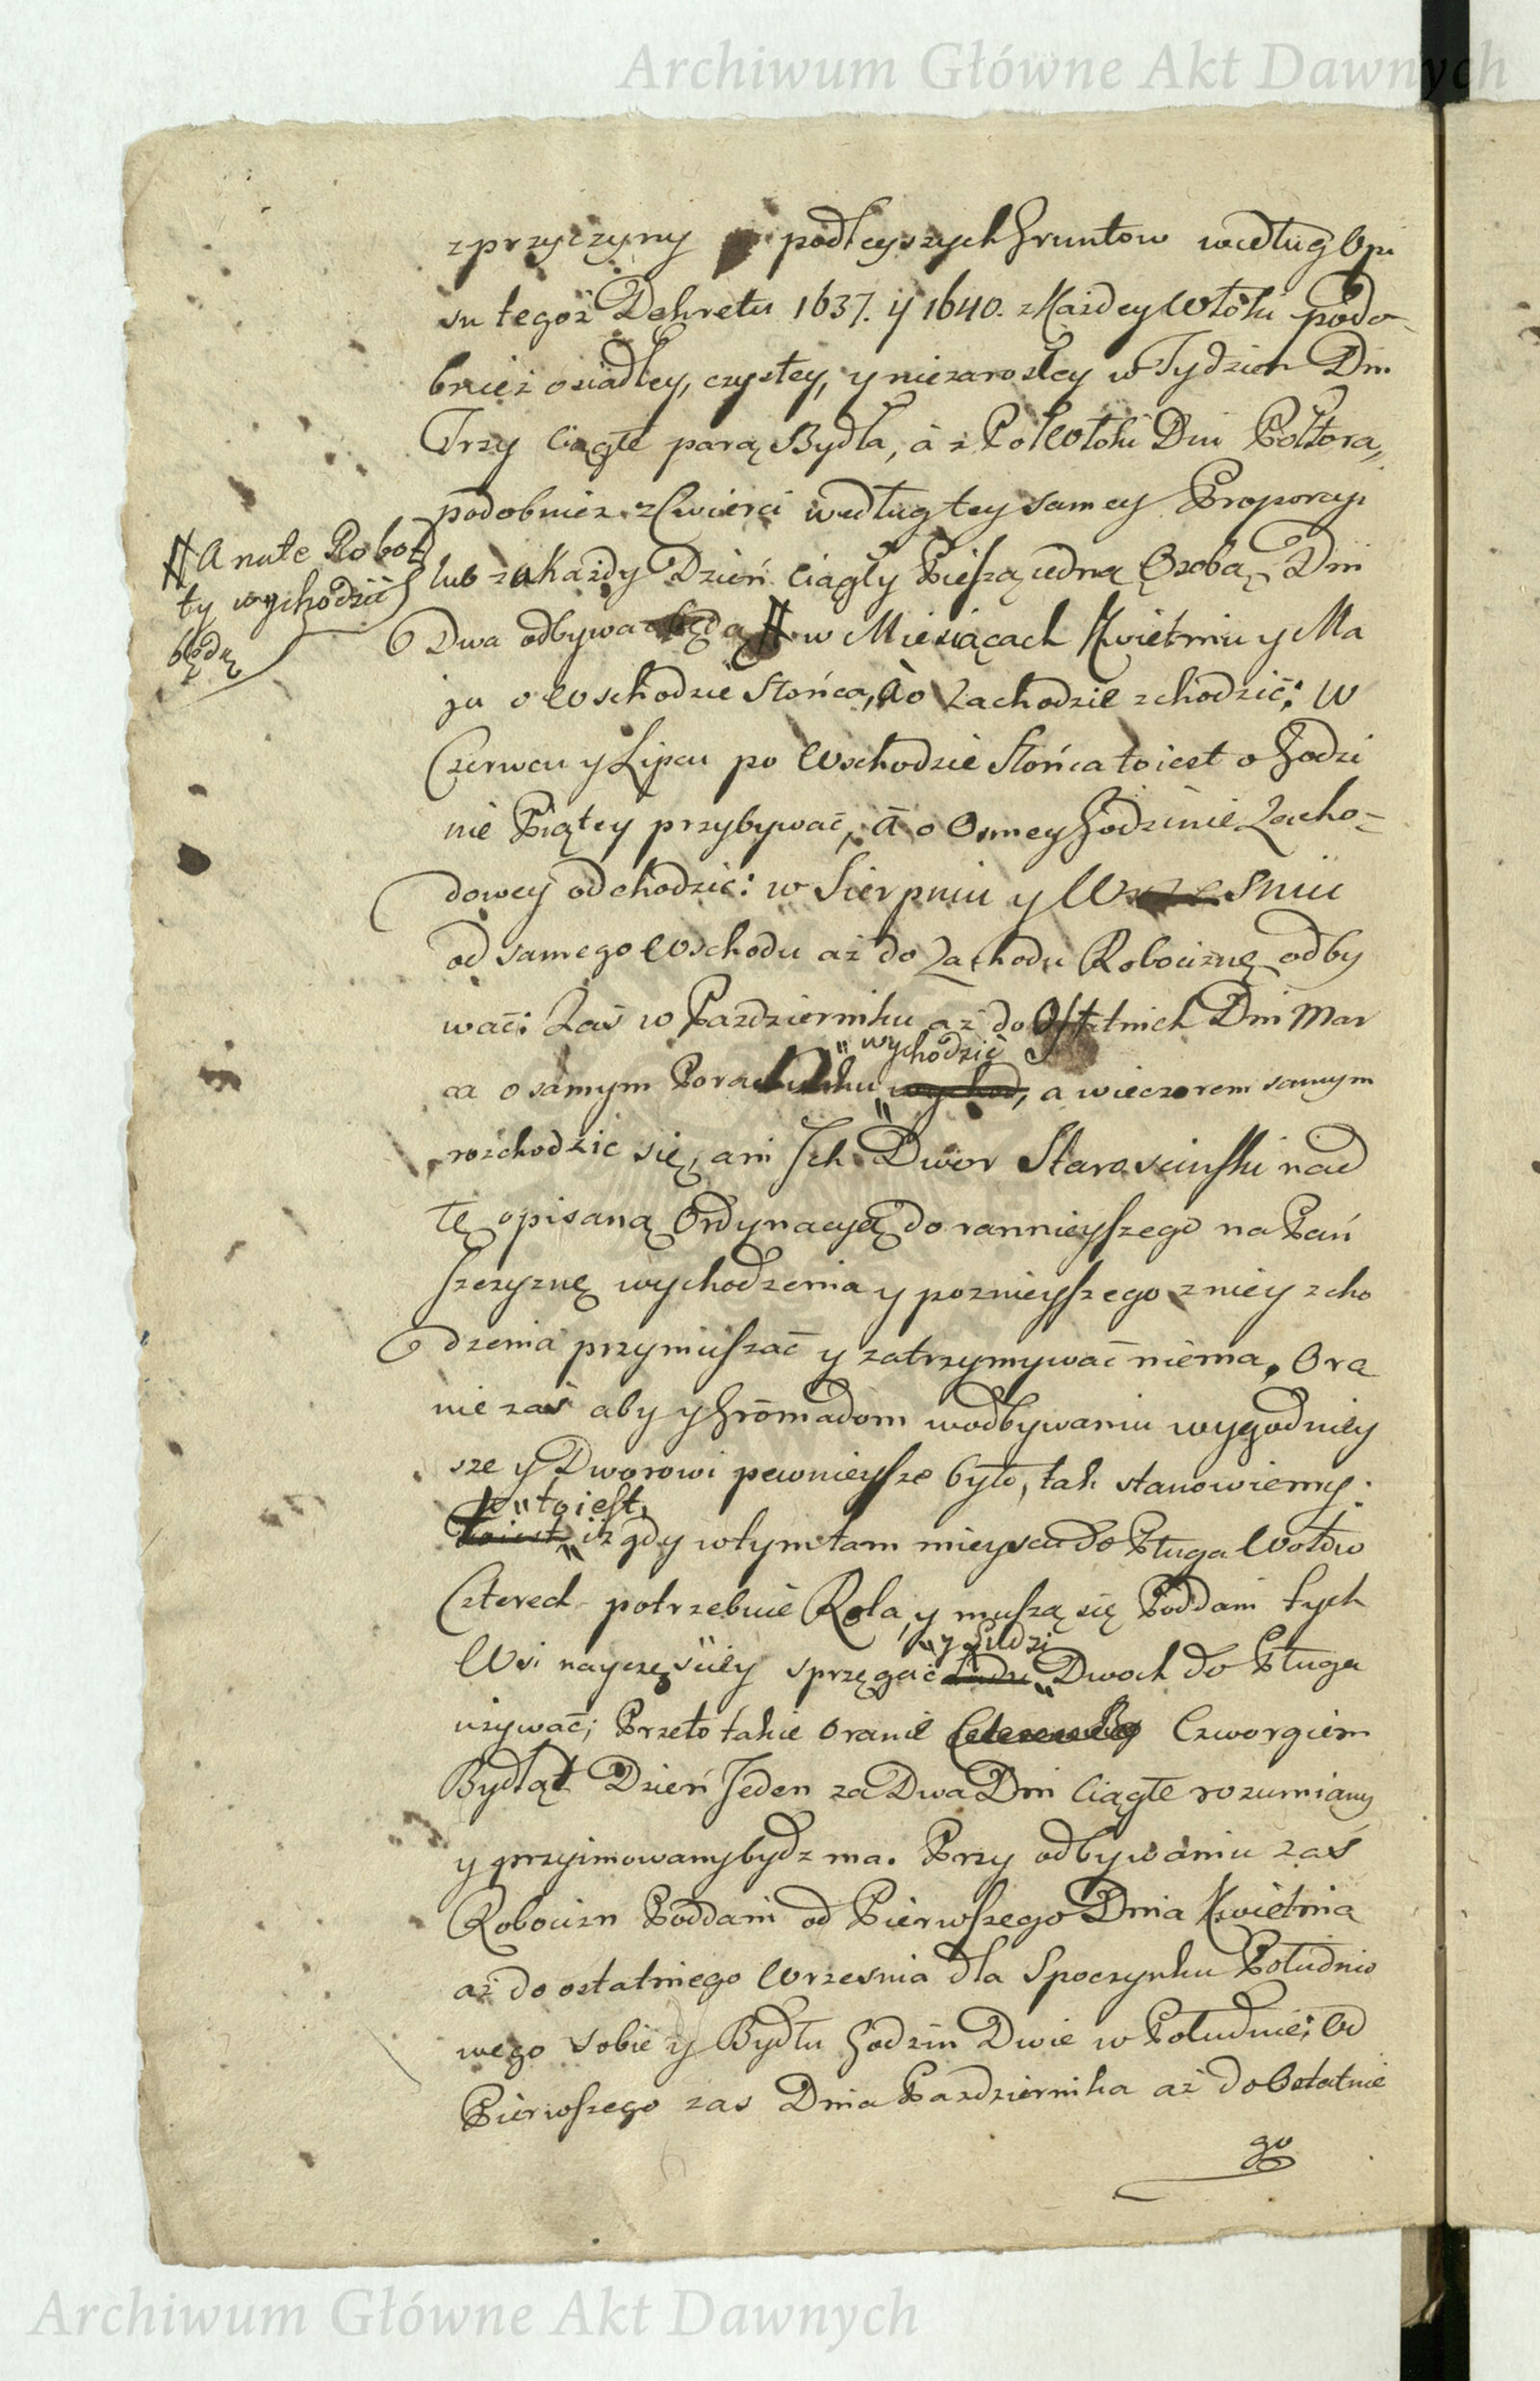 Archiwum Główne Akt Dawnych
z przyczyny podleyszych Gruntow według Opi
su tegoż Dekretu 1637. y 1640. z Każdey Włóki podo-
bnież osiadłey, czystey, y niezarosłey w Tydzień Dni
Trzy Ciągłe parą Bydła, á z Poł Włoki Dni Połtora,
podobnież z Cwierci według tey samey Proporcyi
lub za Każdy Dzień Ciągły Pieszą iedną Osobą, Dni
Dwa odbywać będą # w Miesiącach Kwietniu y Ma
# A na te Robot
ty wychodzić
będą
ju o Wschodzie Słońca, á o Zachodzie zchodzić: W
Czerwcu y Lipcu po Wschodzie Słońca to iest o Godzi
nie Piątey przybywać, á o Osmey Godzinie Zacho-
dowey odchodzić: w Sierpniu y Wrzesniu
od samego Wschodu aż do Zachodu Robociznę odby
wać: Zaś w Pazdzierniku aż do Ostatnich Dni Mar
" wychodzić
ca o samym Poranku wychod, a wieczorem samym
rozchodzić się, ani Ich Dwor Starosciński nad
tę opisaną Ordynacyą do rannieyszego na Pań
szczyznę wychodzenia y poznieyszego z niey zcho
dzenia przymuszać y zatrzymywać niema. Ora
nie zaś aby y Gromadom w odbywaniu wygodniey
sze y Dworowi pewnieysze było, tak stanowiemy:
" to iest,
to iest iż gdy w tym tam mieyscu do Pługa Wołow
Czterech potrzebuie Rola, y muszą się Poddani tych
" y Ludzi
Wsi nayczęsciey sprzęgać Ludzi Dwoch do Pługa
używać; Przeto takie Oranie Czworgiem
Bydląt Dzień Jeden za Dwa Dni Ciągłe rozumiany
y przyimowany bydz ma. Przy odbywaniu zaś
Robocizn Poddani od Pierwszego Dnia Kwietnia
aż do ostatniego Wrzesnia dla Spoczynku Południo
wego sobie y Bydłu Godzin Dwie w Południe: Od
Pierwszego zas Dnia Pazdziernika aż do Ostatnie
go
Archiwum Główne Akt Dawnych